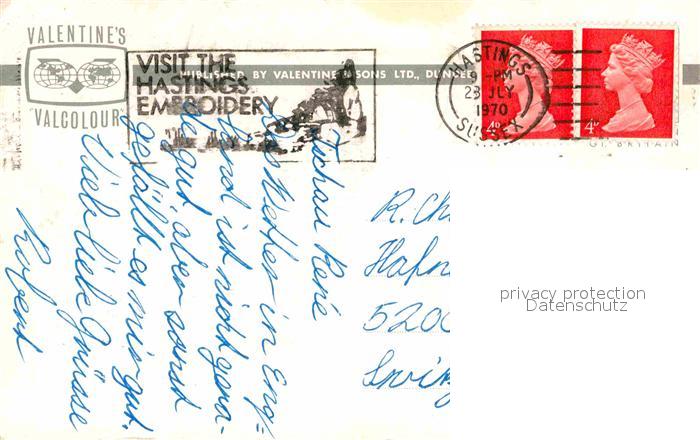 VALENTINE'S
"VALCOLOUR"
PUBLISHED BY VALENTINE & SONS LTD., DUN
VISIT THE
HASTINGS
EMBROIDERY
HASTINGS
9 - PM
23 JLY
1970
SUSSEX
4D
4D
GT. BRITAIN
Tschau René
Das Wetter in Eng-
land ist nicht gera-
de gut aber sonst
gefällt es mir gut.
Viele liebe Grüsse
R. Ch
Hafn
5200
privacy protection
Datenschutz